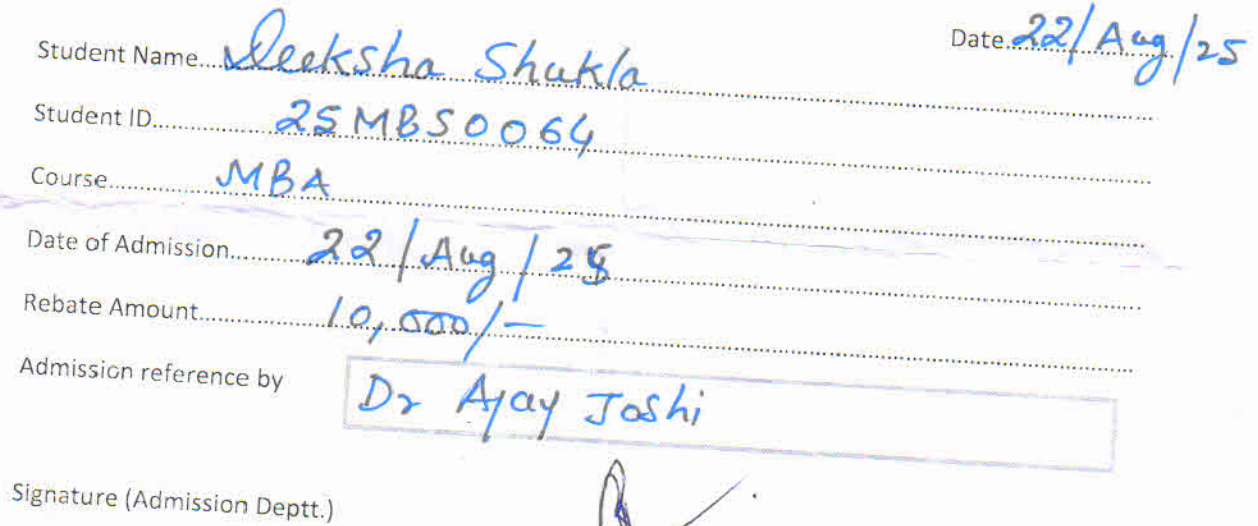 Date 22/Aug/25
Student Name Deeksha Shukla
Student ID 25MBS0064
Course MBA
Date of Admission 22/Aug/25
Rebate Amount 10,000/-
Admission reference by Dr Ajay Joshi
Signature (Admission Deptt.)